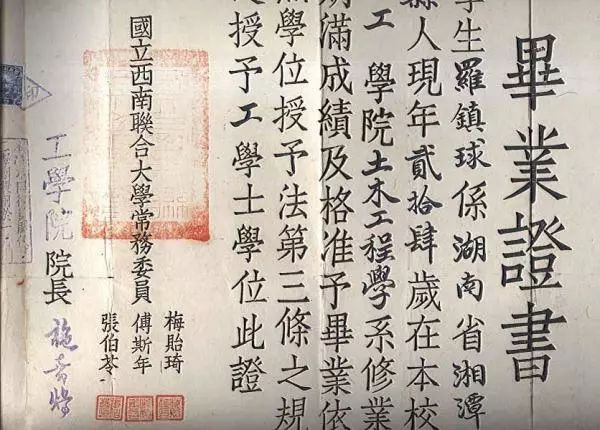 畢業證書
學生羅鎮球係湖南省湘潭
縣人現年貳拾肆歲在本校
工學院土木工程學系修業
期滿成績及格准予畢業依
學位授予法第三條之規
授予工學士學位此證
國立西南聯合大學常務委員
梅貽琦
傅斯年
張伯苓
工學院院長施嘉煬